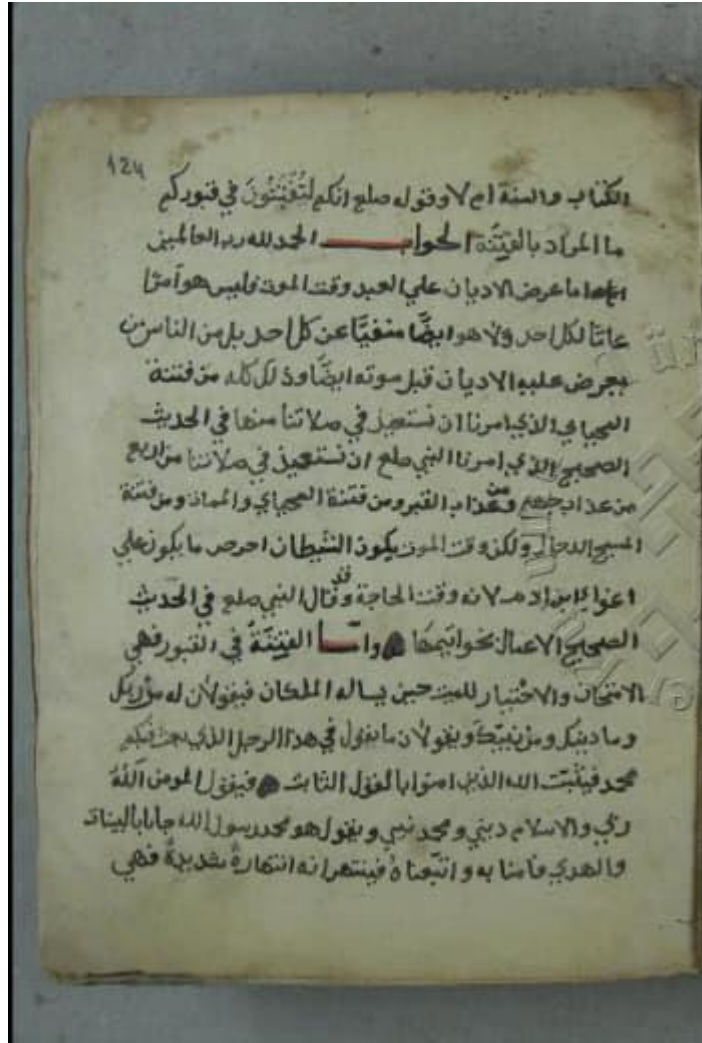 124
الكتاب والسنة ام لا وقوله صلع انكم لتُفْتَنُونَ في قبوركم
ما المراد بالفِتْنَة الجواب الحمد لله رب العالمين
اما عرض الاديان علي العبد وقت الموت فليس هو امرًا
عامًا لكل احد ولا هو ايضًا منفيًا عن كل احد بل من الناس من
يعرض عليه الاديان قبل موته ايضًا وذلك كله من فتنة
المحياي الذي امرنا ان نستعيذ في صلاتنا منها في الحديث
الصحيح الذي امرنا النبي صلع ان نستعيذ في صلاتنا من اربع
من عذاب جهنم ومن عذاب القبر ومن فتنة المحياي والممات ومن فتنة
المسيح الدجال ولكن وقت الموت يكون الشيطان احرص ما يكون علي
اغواء ابن ادم لانه وقت الحاجة وقد قال النبي صلع في الحديث
الصحيح الاعمال بخواتيمها واما الفِتْنَةُ في القبور فهي
الامتحان والاختبار للميت حين يساله الملكان فيقولان له من ربك
وما دينك ومن نبيك ويقولان ما تقول في هذا الرجل الذي بعث فيكم
محمد فيثبت الله الذين امنوا بالقول الثابت فيقول المومن اللهُ
ربي والاسلام ديني ومحمد نبيي ويقول هو محمد رسول الله جانا بالبينات
والهدي فامنا به واتبعناهُ فينتهرانه انتهارةً شديدةً فهي